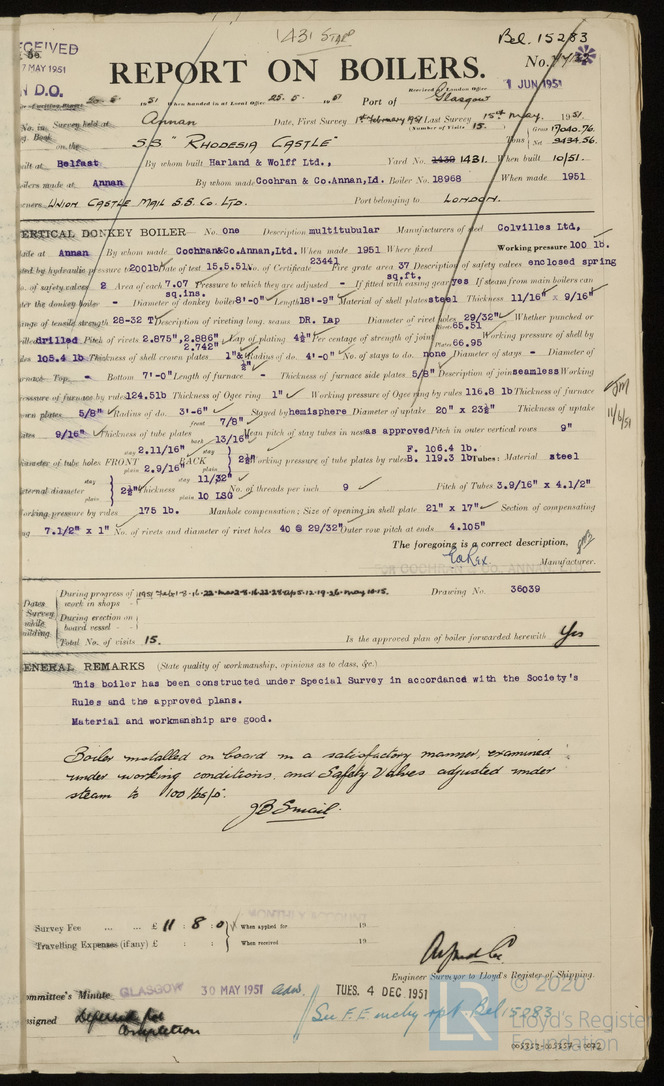 1431 STAR
Bel. 15283
RECEIVED
7 MAY 1951
N D.O.
REPORT ON BOILERS.
No.
1 JUN 1951
Received at London Office
1951 When handed in at Local Office 25. 5. 1951 Port of Glasgow
No. in Survey held at Annan Date, First Survey 1st February 1951 Last Survey 15th May, 1951
Reg. Book (Number of Visits 15.)
on the S.S. "RHODESIA CASTLE" Tons { Gross 17040.76. Net 9434.56.
Built at Belfast By whom built Harland & Wolff Ltd., Yard No. 1439 1431. When built 10/51.
Boilers made at Annan By whom made Cochran & Co.Annan,Ld. Boiler No. 18968 When made 1951
Owners UNION CASTLE MAIL S.S. CO. LTD. Port belonging to LONDON.
VERTICAL DONKEY BOILER No. One Description multitubular Manufacturers of steel Colvilles Ltd,
Made at Annan By whom made Cochran&Co.Annan,Ltd. When made 1951 Where fixed Working pressure 100 lb.
tested by hydraulic pressure to 200lb Date of test 15.5.51 No. of Certificate 23441 Fire grate area 37 sq.ft. Description of safety valves enclosed spring
No. of safety valves 2 Area of each 7.07 sq.ins. Pressure to which they are adjusted - If fitted with easing gear yes If steam from main boilers can
enter the donkey boiler - Diameter of donkey boiler 8'-0" Length 18'-9" Material of shell plates steel Thickness 11/16" x 9/16"
Range of tensile strength 28-32 T Description of riveting long. seams DR. Lap Diameter of rivet holes 29/32" Whether punched or
drilled drilled Pitch of rivets 2.875",2.886" 2.742" Lap of plating 4½" Per centage of strength of joint Rivets 65.51 Plate 66.95 Working pressure of shell by
rules 105.4 lb Thickness of shell crown plates 1"& ½" Radius of do. 4'-0" No. of stays to do. none Diameter of stays - Diameter of
furnace Top - Bottom 7'-0" Length of furnace - Thickness of furnace side plates 5/8" Description of joint seamless Working
pressure of furnace by rules 124.5lb Thickness of Ogee ring 1" Working pressure of Ogee ring by rules 116.8 lb Thickness of furnace
crown plates 5/8" Radius of do. 3'-6" Stayed by hemisphere Diameter of uptake 20" x 23½" Thickness of uptake
plates 9/16" Thickness of tube plates front 7/8" back 13/16" Mean pitch of stay tubes in nests as approved Pitch in outer vertical rows 9"
Diameter of tube holes FRONT stay 2.11/16" plain 2.9/16" BACK stay plain 2½" Working pressure of tube plates by rules F. 106.4 lb. B. 119.3 lb. Tubes: Material steel
External diameter stay plain 2½" Thickness stay 11/32" plain 10 LSG No. of threads per inch 9 Pitch of Tubes 3.9/16" x 4.1/2"
Working pressure by rules 175 lb. Manhole compensation: Size of opening in shell plate 21" x 17" Section of compensating
ring 7.1/2" x 1" No. of rivets and diameter of rivet holes 40 @ 29/32" Outer row pitch at ends 4.105"
11/6/51
The foregoing is a correct description,
Manufacturer.
Dates of Survey while building
During progress of work in shops
During erection on board vessel
Total No. of visits 15.
Drawing No. 36039
Is the approved plan of boiler forwarded herewith Yes
GENERAL REMARKS (State quality of workmanship, opinions as to class, &c.)
This boiler has been constructed under Special Survey in accordance with the Society's
Rules and the approved plans.
Material and workmanship are good.
Boiler installed on board in a satisfactory manner, examined
under working conditions, and Safety Valves adjusted under
steam to 100 lbs/□".
JB Smail.
Survey Fee ... ... £ 11 : 8 : 0 When applied for 19
Travelling Expenses (if any) £ : : When received 19
Engineer Surveyor to Lloyd's Register of Shipping.
Committee's Minute GLASGOW 30 MAY 1951 TUES. 4 DEC 1951
Assigned Deferred for
Completion
See F.E. mchy rpt. Bel 15283
© 2020
LR
Lloyd's Register
Foundation
005353-005357-0092